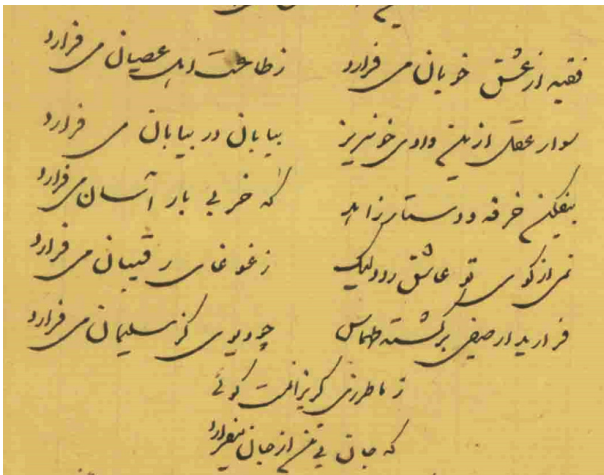 فقیه از عشق خوبان می فرارد ز طاعت اهل عصیان می فرارد
سوار عقل ازین وادی خونریز بیابان در بیابان می فرارد
بیفکن خرقه و دستار زاهد که خر بی بار آسان می فرارد
نمی از کوی تو عاشق رود لیک ز غوغای رقیبان می فرارد
فرارید از صفی برگشته طهماس چو دیوی کز سلیمان می فرارد
ز ما طرزی گریزانست گوئی
که جان از جان میفرارد